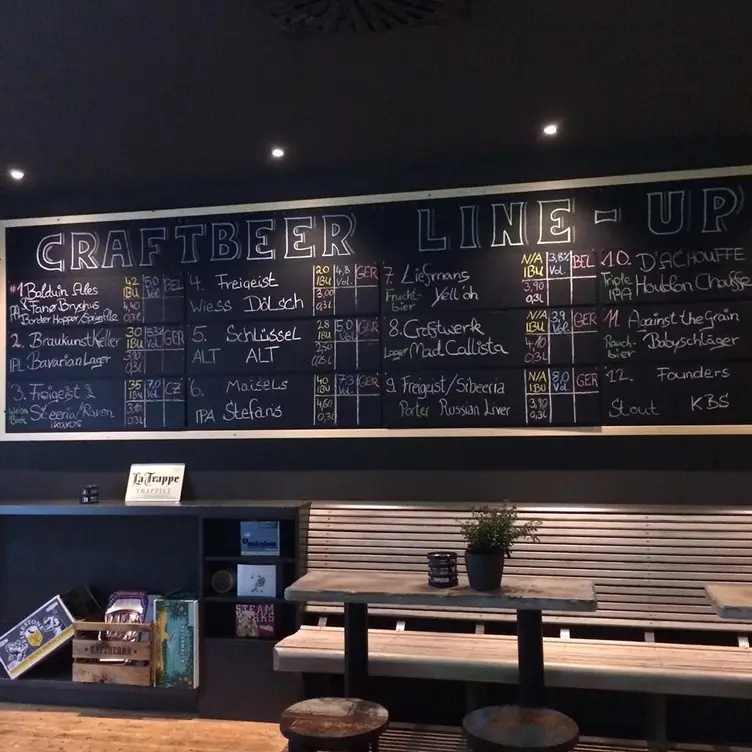 CRAFTBEER LINE-UP
#1 Balduin Ales 42 IBU 5,0 Vol. BEL
Fanø Bryghus
4,40
0,3l
2. Braukunstkeller 30 IBU GER
IPL Bavarian Lager
0,3l
3. Freigeist & 35 IBU 7,0 Vol. CZ
Ikaros
3,90
0,3l
4. Freigeist 20 IBU 4,8 Vol. GER
Wiess Dölsch 3,00
0,3l
5. Schlüssel 28 IBU 5,0 Vol. GER
ALT ALT
0,25l
6. Maisels 40 IBU 7,3 Vol. GER
IPA Stefans 4,60
0,3l
7. Liefmans N/A IBU 3,8% Vol. BEL
Frucht-
bier Yell'oh 3,90
0,3l
8. Craftwerk N/A IBU 3,9 Vol. GER
Lager Mad Callista 4,10
0,3l
9. Freigeist/Sibeeria N/A IBU 8,0 Vol. GER
Porter Russian Liver 3,90
0,3l
10. D'ACHOUFFE
Triple
IPA Houblon Chouffe
11. Against the Grain
Rauch-
bier Babyschläger
12. Founders
Stout KBS
La Trappe
TRAPPIST
STEAM
WORKS